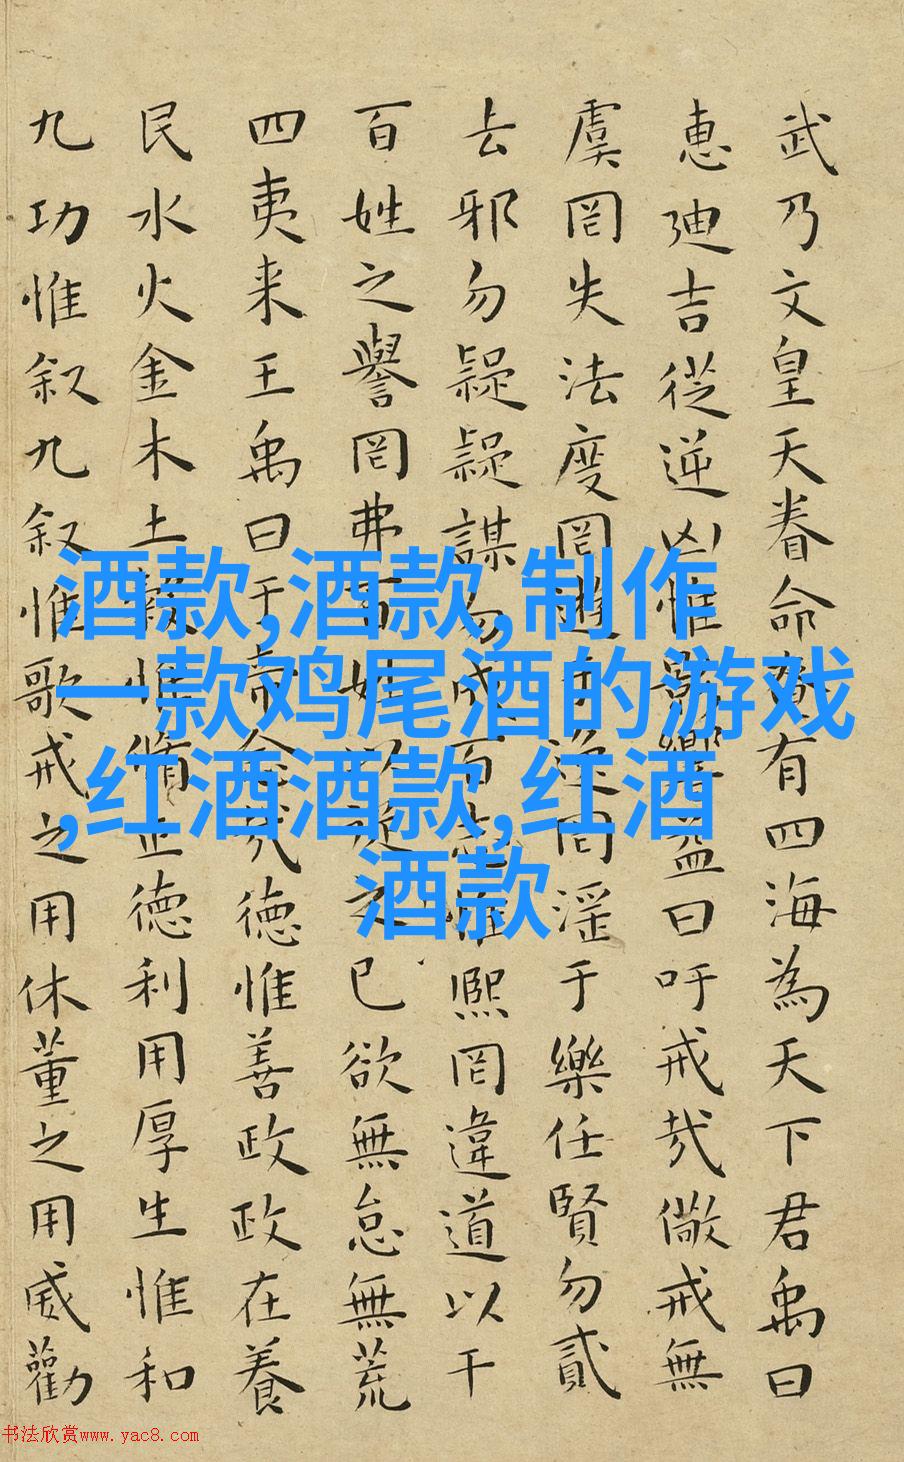 武乃文皇天眷命奄有四海為天下君禹曰
惠迪吉從逆凶惟影響益曰吁戒哉儆戒無
虞罔失法度罔遊于逸罔淫于樂任賢勿貳
去邪勿疑疑謀勿成百志惟熙罔違道以干
百姓之譽罔弗百姓以從之已欲無怠無荒
四夷来王禹曰于帝念哉德惟善政政在養
民水火金木土穀惟脩正德利用厚生惟和
九功惟叙九叙惟歌戒之用休董之用威勸
酒款,酒款,制作
一款鸡尾酒的游戏
,红酒酒款,红酒
酒款
书法欣赏www.yac8.com